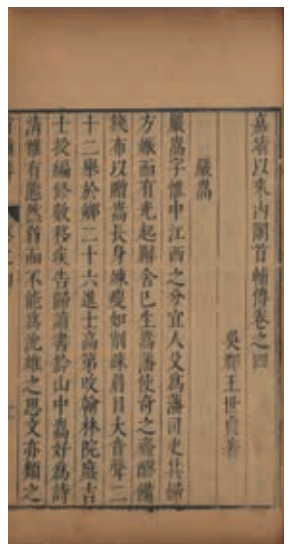 嘉靖以來內閣首輔傳卷之四
吳郡王世貞著
嚴嵩
嚴嵩字惟中江西之分宜人父為藩司吏其婦
方娠而有光起廨舍已生嵩藩使奇之
錢布以贈嵩長身竦瘦如削疎眉目大音聲二
十二舉於鄉二十六進士高第改翰林院庶吉
士授編修移疾告歸讀書鈐山中嵩好為詩
清雅有態然弱而不能為沈雄之思文亦類之